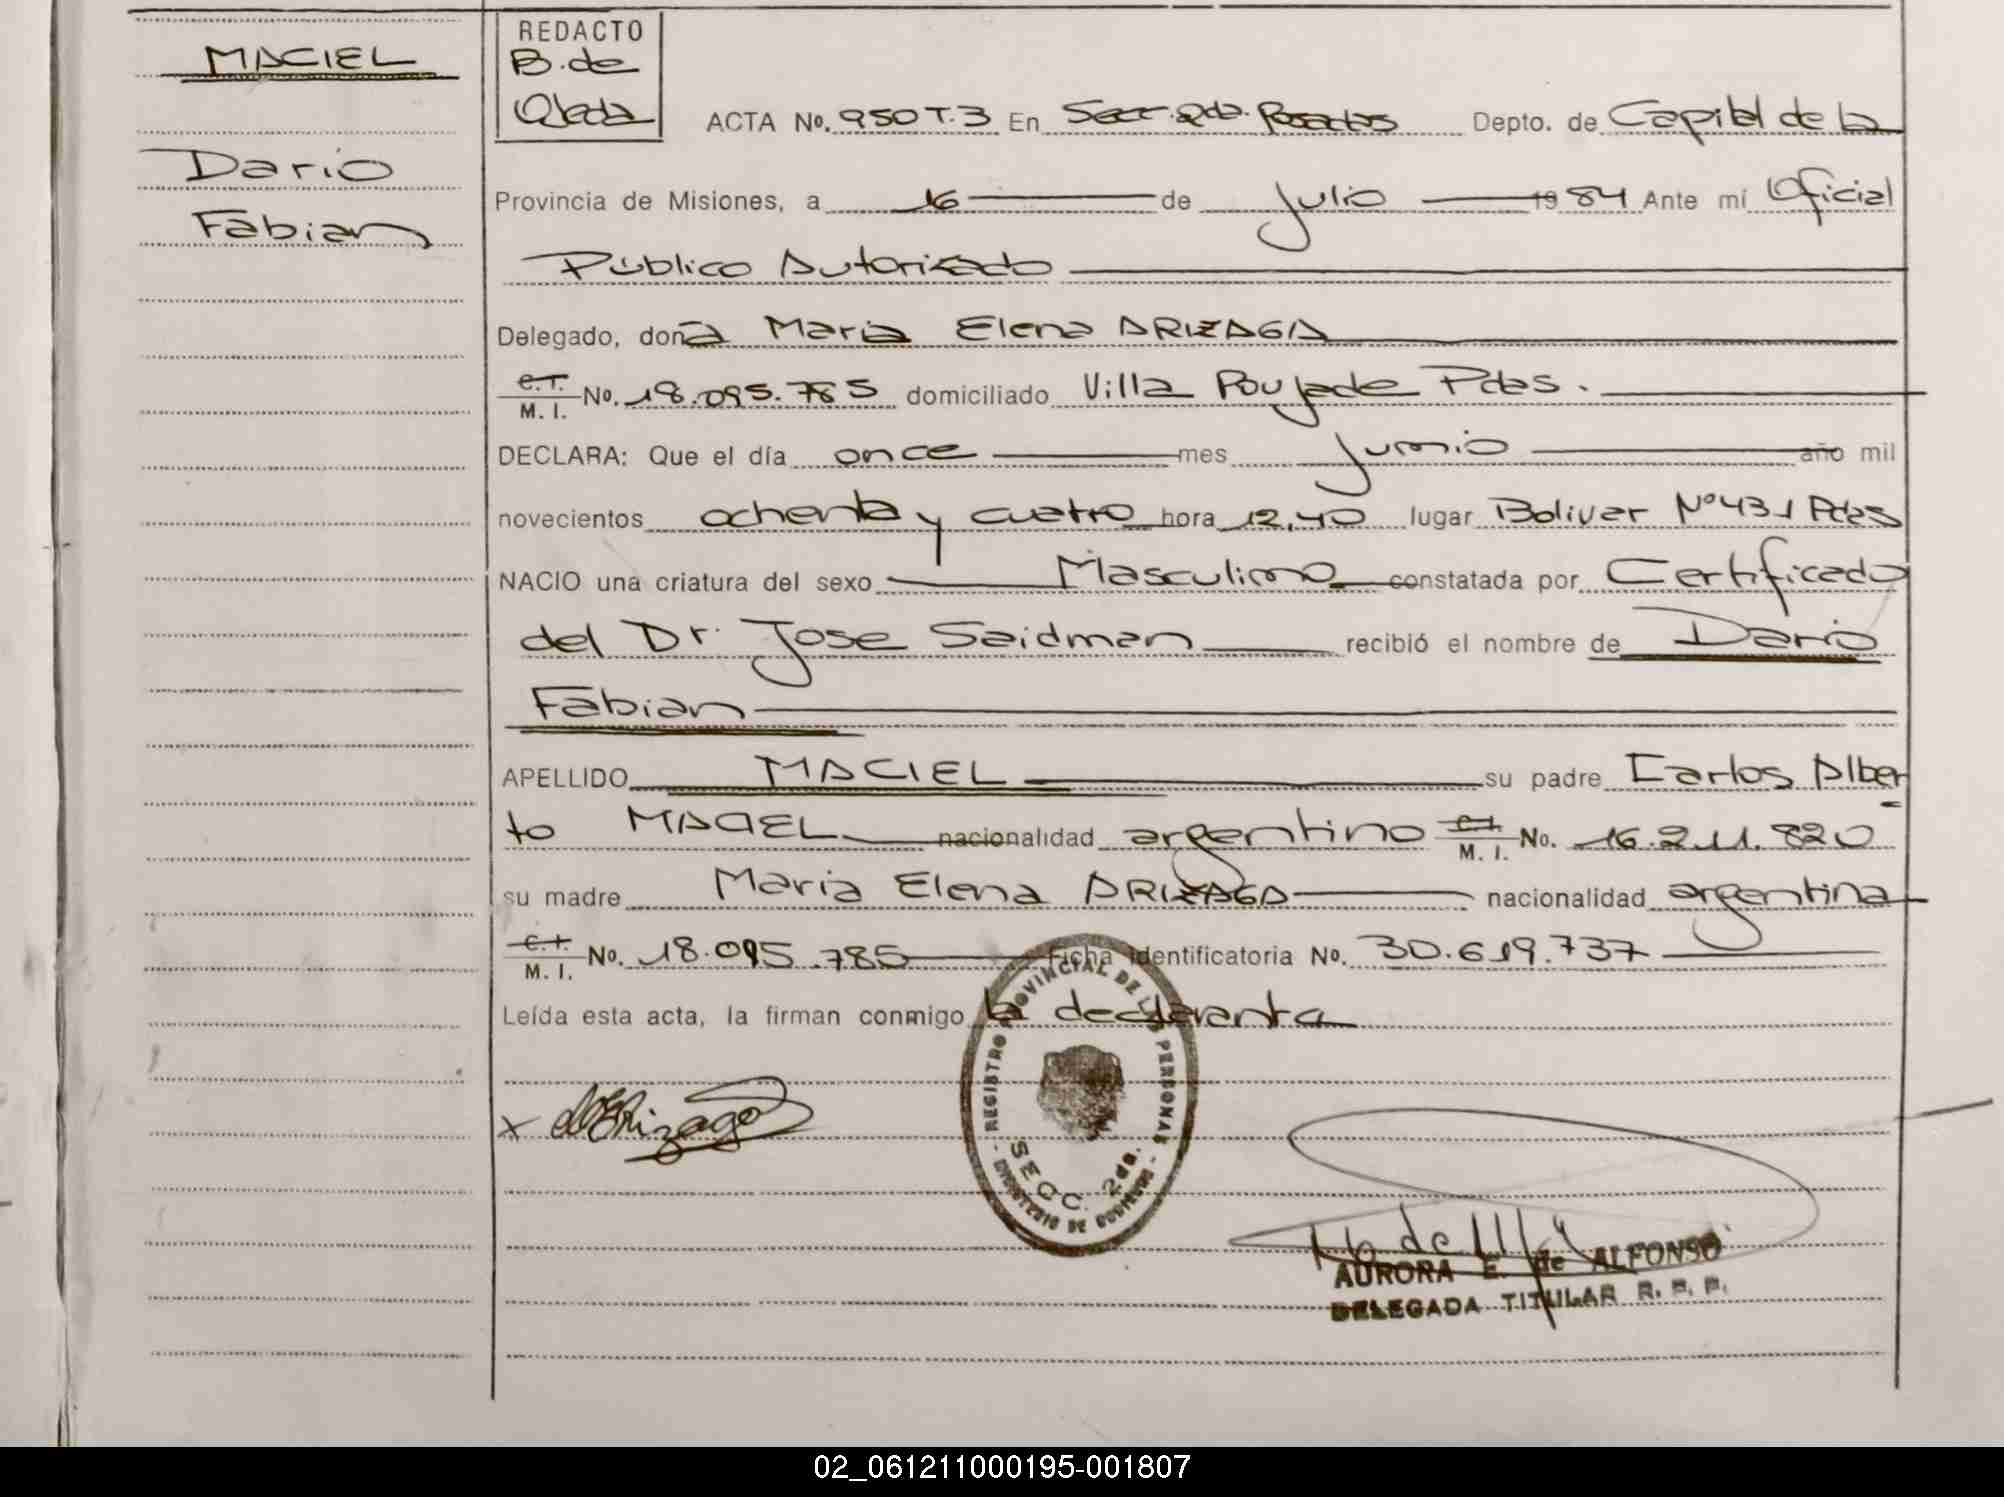 MACIEL
Dario
Fabian
REDACTO
B. de
Ojeda
ACTA No. 950 T.3 En Secc. 2da. Posadas Depto. de Capital de la
Provincia de Misiones, a 16 de Julio 1984 Ante mí Oficial
Público Autorizado
Delegado, doña Maria Elena ARIZAGA
C.I. M. I. No. 18.095.785 domiciliado Villa Poujade Pdas.
DECLARA: Que el día once mes Junio año mil
novecientos ochenta y cuatro hora 12,40 lugar Bolivar Nº 431 Pdas
NACIO una criatura del sexo Masculino constatada por Certificado
del Dr. Jose Saidman recibió el nombre de Dario
Fabian
APELLIDO MACIEL su padre Carlos Alber
to MACIEL nacionalidad argentino C.I. M. I. No. 16.211.820
su madre Maria Elena ARIZAGA nacionalidad argentina
C.I. M. I. No. 18.095.785 Ficha identificatoria No. 30.619.737
Leída esta acta, la firman conmigo la declaranta
REGISTRO PROVINCIAL DE LAS PERSONAS
SECC. 2da.
MINISTERIO DE GOBIERNO
x Arizaga
AURORA E. de ALFONSO
DELEGADA TITULAR R. P. P.
02_061211000195-001807